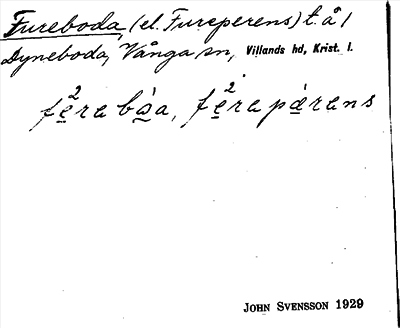 Fureboda, (el. Fureperens) t. å /
Dyneboda, Vånga sn, Villands hd, Krist. l.
fe²rabȧ̠a, fe²rapærens
JOHN SVENSSON 1929